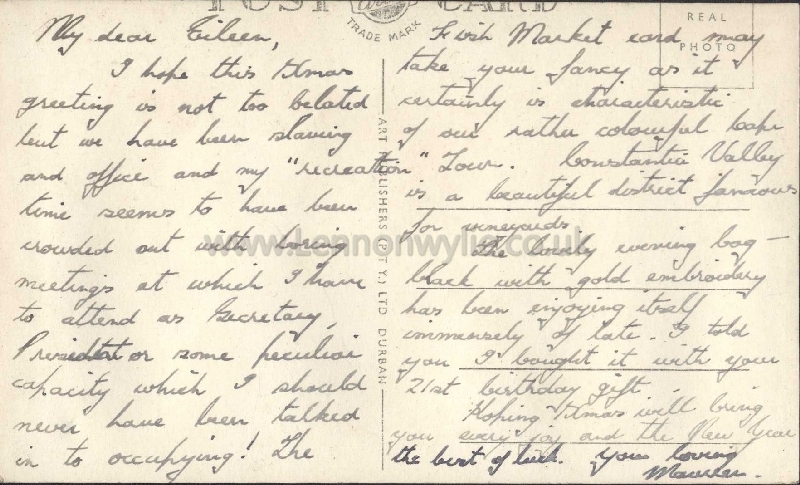 POST CARD
TRADE MARK
REAL
PHOTO
My dear Eileen,
I hope this Xmas
greeting is not too belated
but we have been slaving
and office and my "recreation"
time seems to have been
crowded out with boring
meetings at which I have
to attend as Secretary,
President or some peculiar
capacity which I should
never have been talked
in to occupying! The
ART PUBLISHERS (PTY.) LTD DURBAN
Fish Market card may
take your fancy as it
certainly is characteristic
of our rather colourful Cape
Town. Constantia Valley
is a beautiful district famous
for vineyards
The lovely evening bag –
black with gold embroidery
has been enjoying itself
immensely of late. I told
you I bought it with your
21st birthday gift.
Hoping Xmas will bring
you every joy and the New Year
the best of luck. Your loving
Maureen.
www.lennonwylie.co.uk